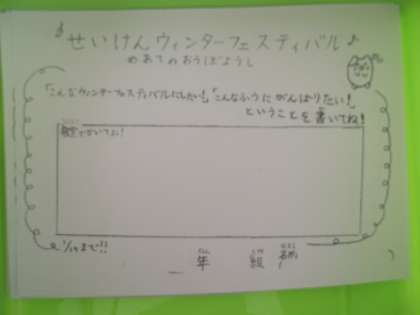 ♪せいけんウィンターフェスティバル♪
めあてのおうぼようし
「こんなウィンターフェスティバルにしたい!」「こんなふうにがんばりたい!」
ということを書いてね!
でかいてね!
1/19まで!!
年 組 名前